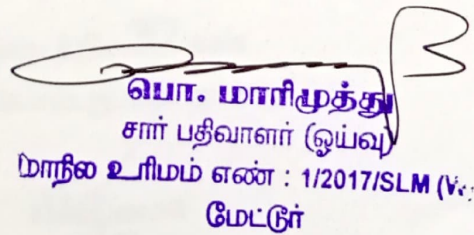 பொ. மாரிமுத்து
சார் பதிவாளர் (ஓய்வு)
மாநில உரிமம் எண் : 1/2017/SLM
மேட்டூர்